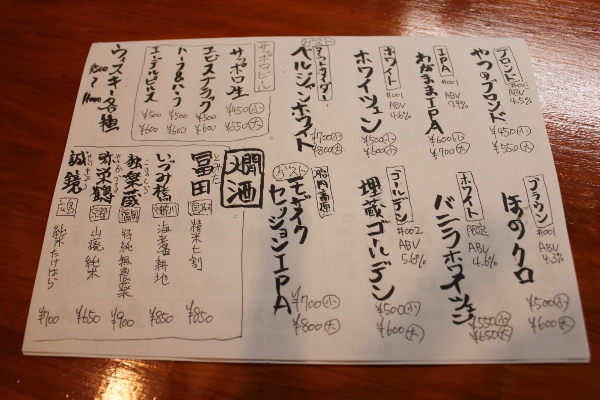 ブロンド
#001
ABV
4.5%
やつのブロンド
¥450小
¥550大
IPA
#001
ABV
7.9%
わがままIPA
¥600小
¥700大
ホワイト
#001
ABV
4.6%
ホワイツェン
¥500小
¥600大
ゲスト
アウトサイダー
ベルジャンホワイト
¥700小
¥800大
サッポロビール
サッポロ生
¥450小
¥550大
エビスブラック
¥500
¥600
ハーフ&ハーフ
¥500
¥600
エーデルピルス
¥500
¥600
ウィスキー各種
¥500
〜
ブラウン
#001
ABV
4.3%
ほのクロ
¥500小
¥600大
ホワイト
限定
ABV
4.6%
バニラホワイツェン
¥550小
¥650大
ゴールデン
#002
ABV
5.6%
埋蔵ゴールデン
¥500小
¥600大
ゲスト
胎内高原
モザイク
セッションIPA
¥700小
¥800大
燗酒
とみた
冨田
鳥取
精米七割
¥850
いづみ橋
神奈川
海老名耕地
¥850
独楽蔵
福岡
特純無農薬
¥900
弥栄鶴
京都
山廃純米
¥650
誠鏡
広島
純米たけはら
¥700